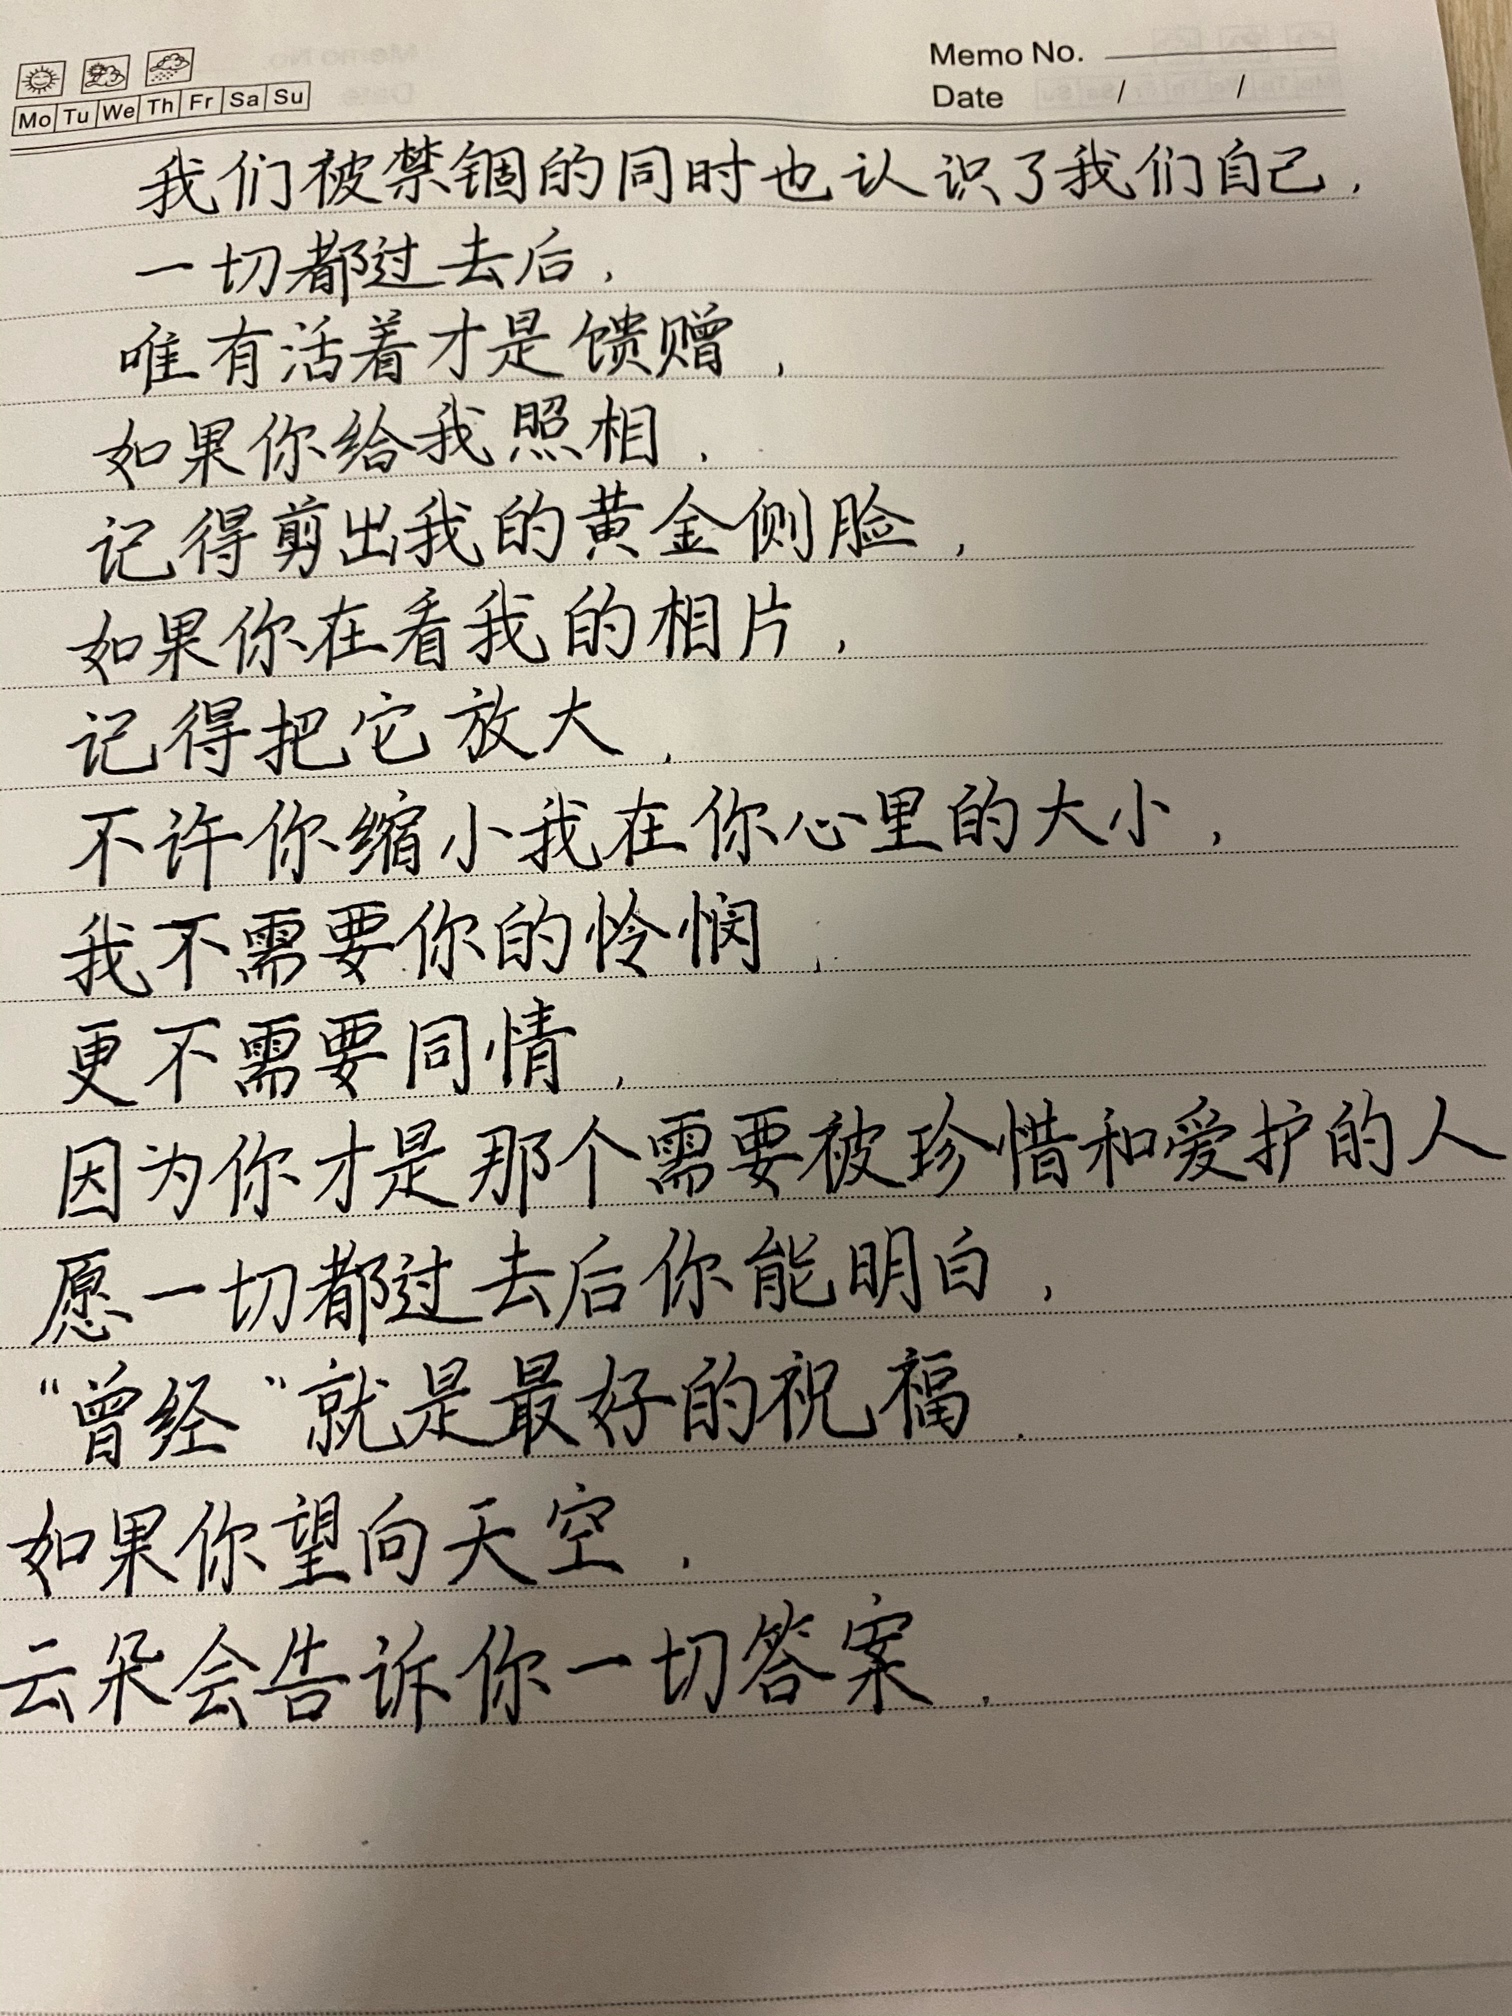 Memo No.
Mo Tu We Th Fr Sa Su
Date / /
我们被禁锢的同时也认识了我们自己,
一切都过去后,
唯有活着才是馈赠,
如果你给我照相,
记得剪出我的黄金侧脸,
如果你在看我的相片,
记得把它放大,
不许你缩小我在你心里的大小,
我不需要你的怜悯,
更不需要同情,
因为你才是那个需要被珍惜和爱护的人
愿一切都过去后你能明白,
“曾经”就是最好的祝福.
如果你望向天空,
云朵会告诉你一切答案.